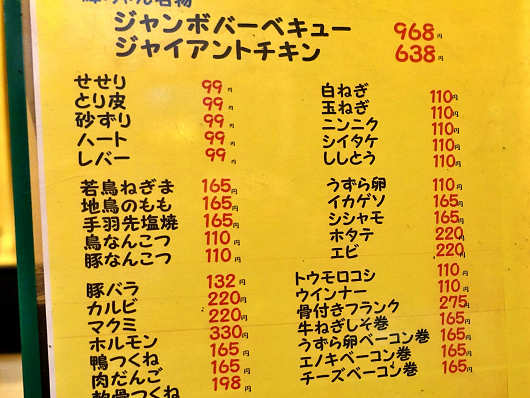 ちゃん名物
ジャンボバーベキュー 968円
ジャイアントチキン 638円
せせり 99円
とり皮 99円
砂ずり 99円
ハート 99円
レバー 99円
若鳥ねぎま 165円
地鳥のもも 165円
手羽先塩焼 165円
鳥なんこつ 110円
豚なんこつ 110円
豚バラ 132円
カルビ 220円
マクミ 220円
ホルモン 330円
鴨つくね 165円
肉だんご 165円
軟骨つくね 198円
白ねぎ 110円
玉ねぎ 110円
ニンニク 110円
シイタケ 110円
ししとう 110円
うずら卵 110円
イカゲソ 165円
シシャモ 165円
ホタテ 220円
エビ 220円
トウモロコシ 110円
ウインナー 110円
骨付きフランク 275円
牛ねぎしそ巻 165円
うずら卵ベーコン巻 165円
エノキベーコン巻 165円
チーズベーコン巻 165円